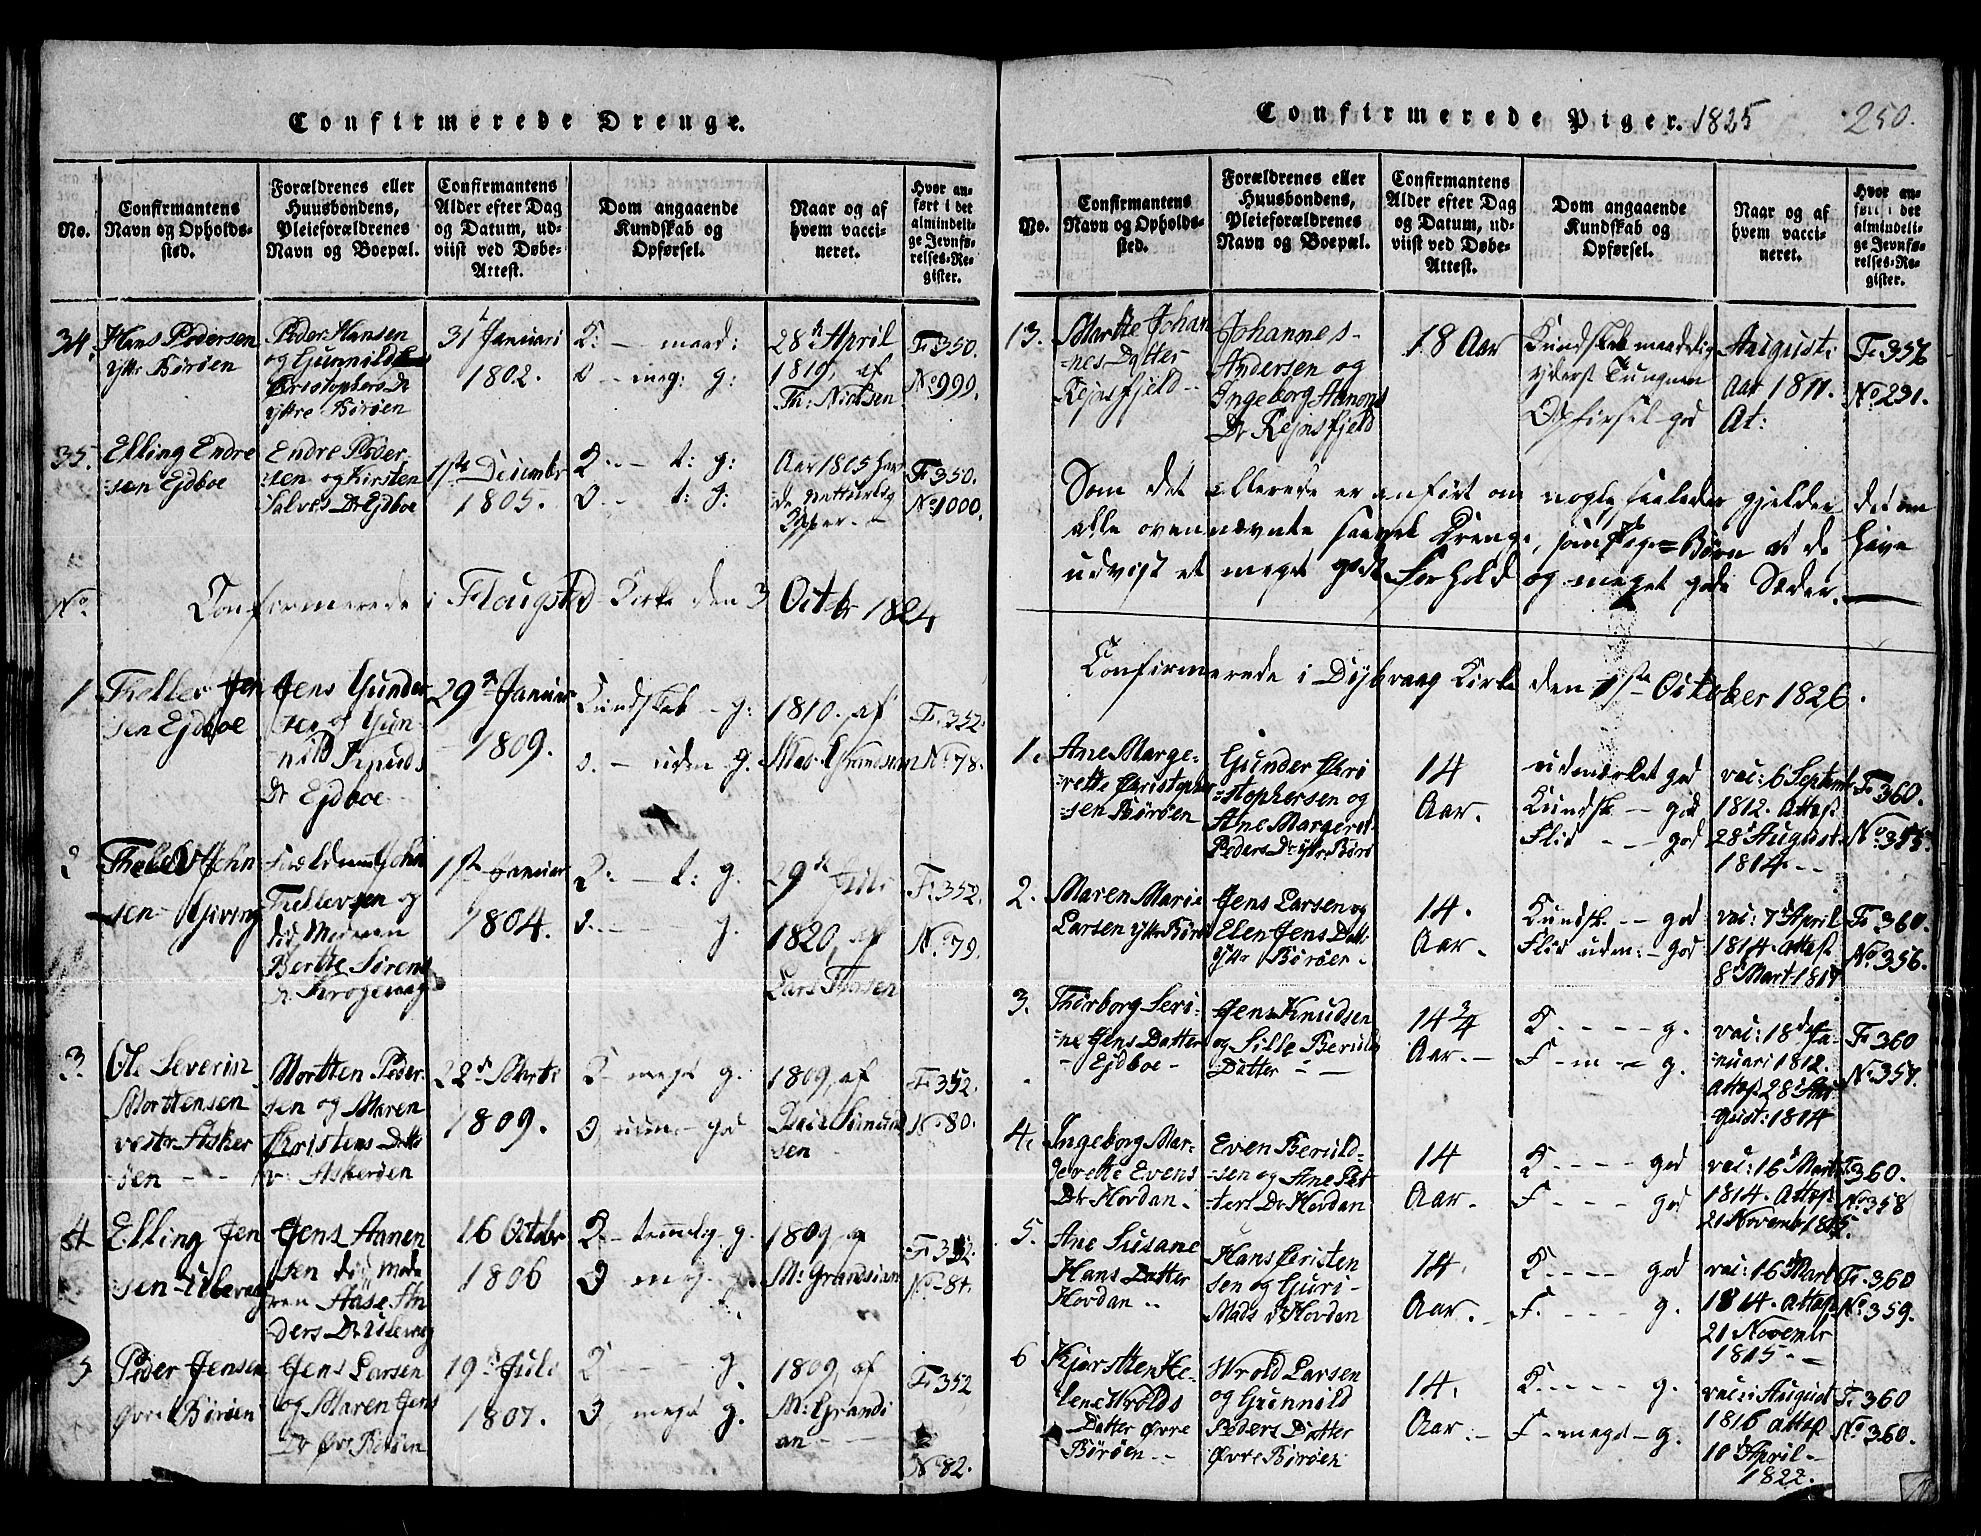 Confirmerede Drenge.
No.
Confirmantens
Navn og Opholds-
sted.
Forældrenes eller
Huusbondens,
Pleieforældrenes
Navn og Boepæl.
Confirmantens
Alder efter Dag
og Datum, ud-
viist ved Døbe-
Attest.
Dom angaaende
Kundskab og
Opførsel.
Naar og af
hvem vacci-
neret.
Hvor an-
ført i det
almindeli-
ge Jevnfø-
relses-Re-
gister.
34.
Hans Pedersen
yttre Börøen
Peder Hansen
og Gunnild
Christophers Dr
yttre Börøen
31 Januari
1802.
K: — maad:
O — meg: g:
28de April
1819, af
Th: Nielsen
F. 350.
No 999.
35.
Elling Endre
sen Ejdboe
Endre Peder-
sen og Kirsten
Salves Dr Ejdboe
1ste Decembr
1805.
K. — t: g:
O — t: g:
Aar 1805 hav
de naturlig
F. 350.
No 1000.
No
Confirmerede i Flaugstad Kirke den 3 Octobr 1824
1
Thellev Jen
sen Ejdboe
Jens Gunder
sen og Gun-
nild Knuds
Dr Ejdboe
29de Januar
1809.
Kundskab — g:
O. — uden g.
1810, af
Mad. Grandsian
F. 352.
No 78.
2
Thelev John
sen Giving
John
Thellevsen og
Berthe Sörens
1ste Januar
1804.
K: — t: g.
O. — g.
29de Juli
1820, af
Lars Thorsen
F. 352.
No 79.
3
Ole Severin
Morttensen
vestr Asker
öen — —
Mortten Peder-
sen og Maren
Christens Datt
v: Askeröen
22de Marti
1809.
K — meget g.
O — god
1809, af
sen
F. 352.
No 80.
4
Elling Jen
sen Ulevaag
Jens Annen
sen
Aase An
ders Dr Ulevaag
16 Octobr
1806
K — temmelig g.
O meg. g.
1809, af
M: Grandsian
F. 352.
No 81.
5
Peder Jensen
Øvre Börøen
Jens Larsen
og Maren Jens
Dr Øvre Börøen
19de Juli
1807.
K — — g.
O meget g.
1809, af
M: Grandsi
an — —
F. 352
No 82.
Confirmerede Piger. 1825
250.
No.
Confirmantens
Navn og Opholds-
sted.
Forældrenes eller
Huusbondens,
Pleieforældrenes
Navn og Boepæl.
Confirmantens
Alder efter Dag
og Datum, ud-
viist ved Døbe-
Attest.
Dom angaaende
Kundskab og
Opførsel.
Naar og af
hvem vacci-
neret.
Hvor an-
ført i det
almindeli-
ge Jevnfø-
relses-Re-
gister.
13.
Marthe Johan
nes Datter
Rejnsfjeld
Johannes
Andersen og
Ingeborg Aanons
Dr Rejnsfjeld
18 Aar
Kundskab maadelig
yderst Tungnem
Opførsel god
Augusti
Aar 1811.
At:
F. 356
No 291.
Som det allerede er anført om nogle saaledes gjelder det om
alle ovennævnte saavel Drenge, som Pige-Børn at de have
udvist et meget godt Forhold og meget gode Sæder.
Confirmerede i Dÿbvaag Kirke den 1ste October 1826.
1.
Ane Marge-
rette Christopher
sen Börøen
Gunder Chri
stophersen og
Ane Margeret
Peders Dr yttr Börö
14
Aar.
udmærket god
Kundsk — god
Flid — — god
vac: 6 Septembr
1812. Attest
28 Augusti
1814. — —
F. 360.
No 355.
2.
Maren Marie
Larsen yttr Börö
Jens Larsen og
Elen Jens Datt
yttr Börøen
14.
Aar.
Kundsk. — — god
Flid udm: — god
vac: 7 April
1814. Attest
8 Mart 1817
F. 360.
No 356.
3.
Thorborg Seri-
ne Jens Datter
Ejdboe
Jens Knudsen
og Sille Beruld
Datter — —
14 3/4
Aar. —
K — — — g.
F — m — g.
vac: 18de Ja-
nuari 1812.
Attest 28 Au-
gust: 1814
F. 360
No 357.
4.
Ingeborg Mar-
gerette Evens
Dr Hovdan
Even Beruld-
sen og Ane Pet
ters Dr Hovdan
14
Aar.
K — — — god
F — — — god
vac: 16 Mart
1814. Attest
21 Novemb 1815.
F. 360.
No 358
5.
Ane Susane
Hans Datter
Hovdan
Hans Christen
sen og Guri-
Mads Dr Hovdan
14.
Aar.
K — — — god
F. — — — g.
vac: 16 Mart
1814. Attest
21 Novembr
1815. —
F. 360
No 359.
6
Kjersttien He-
lene Wrolds
Datter Øvre
Börøen
Wrold Larsen
og Gunnild
Peders Datter
Øvre Börøen
14.
Aar. —
K — — — g.
F — meget — g.
vac: August
1816 Attest
10 April
1822.
F. 360
No 360.